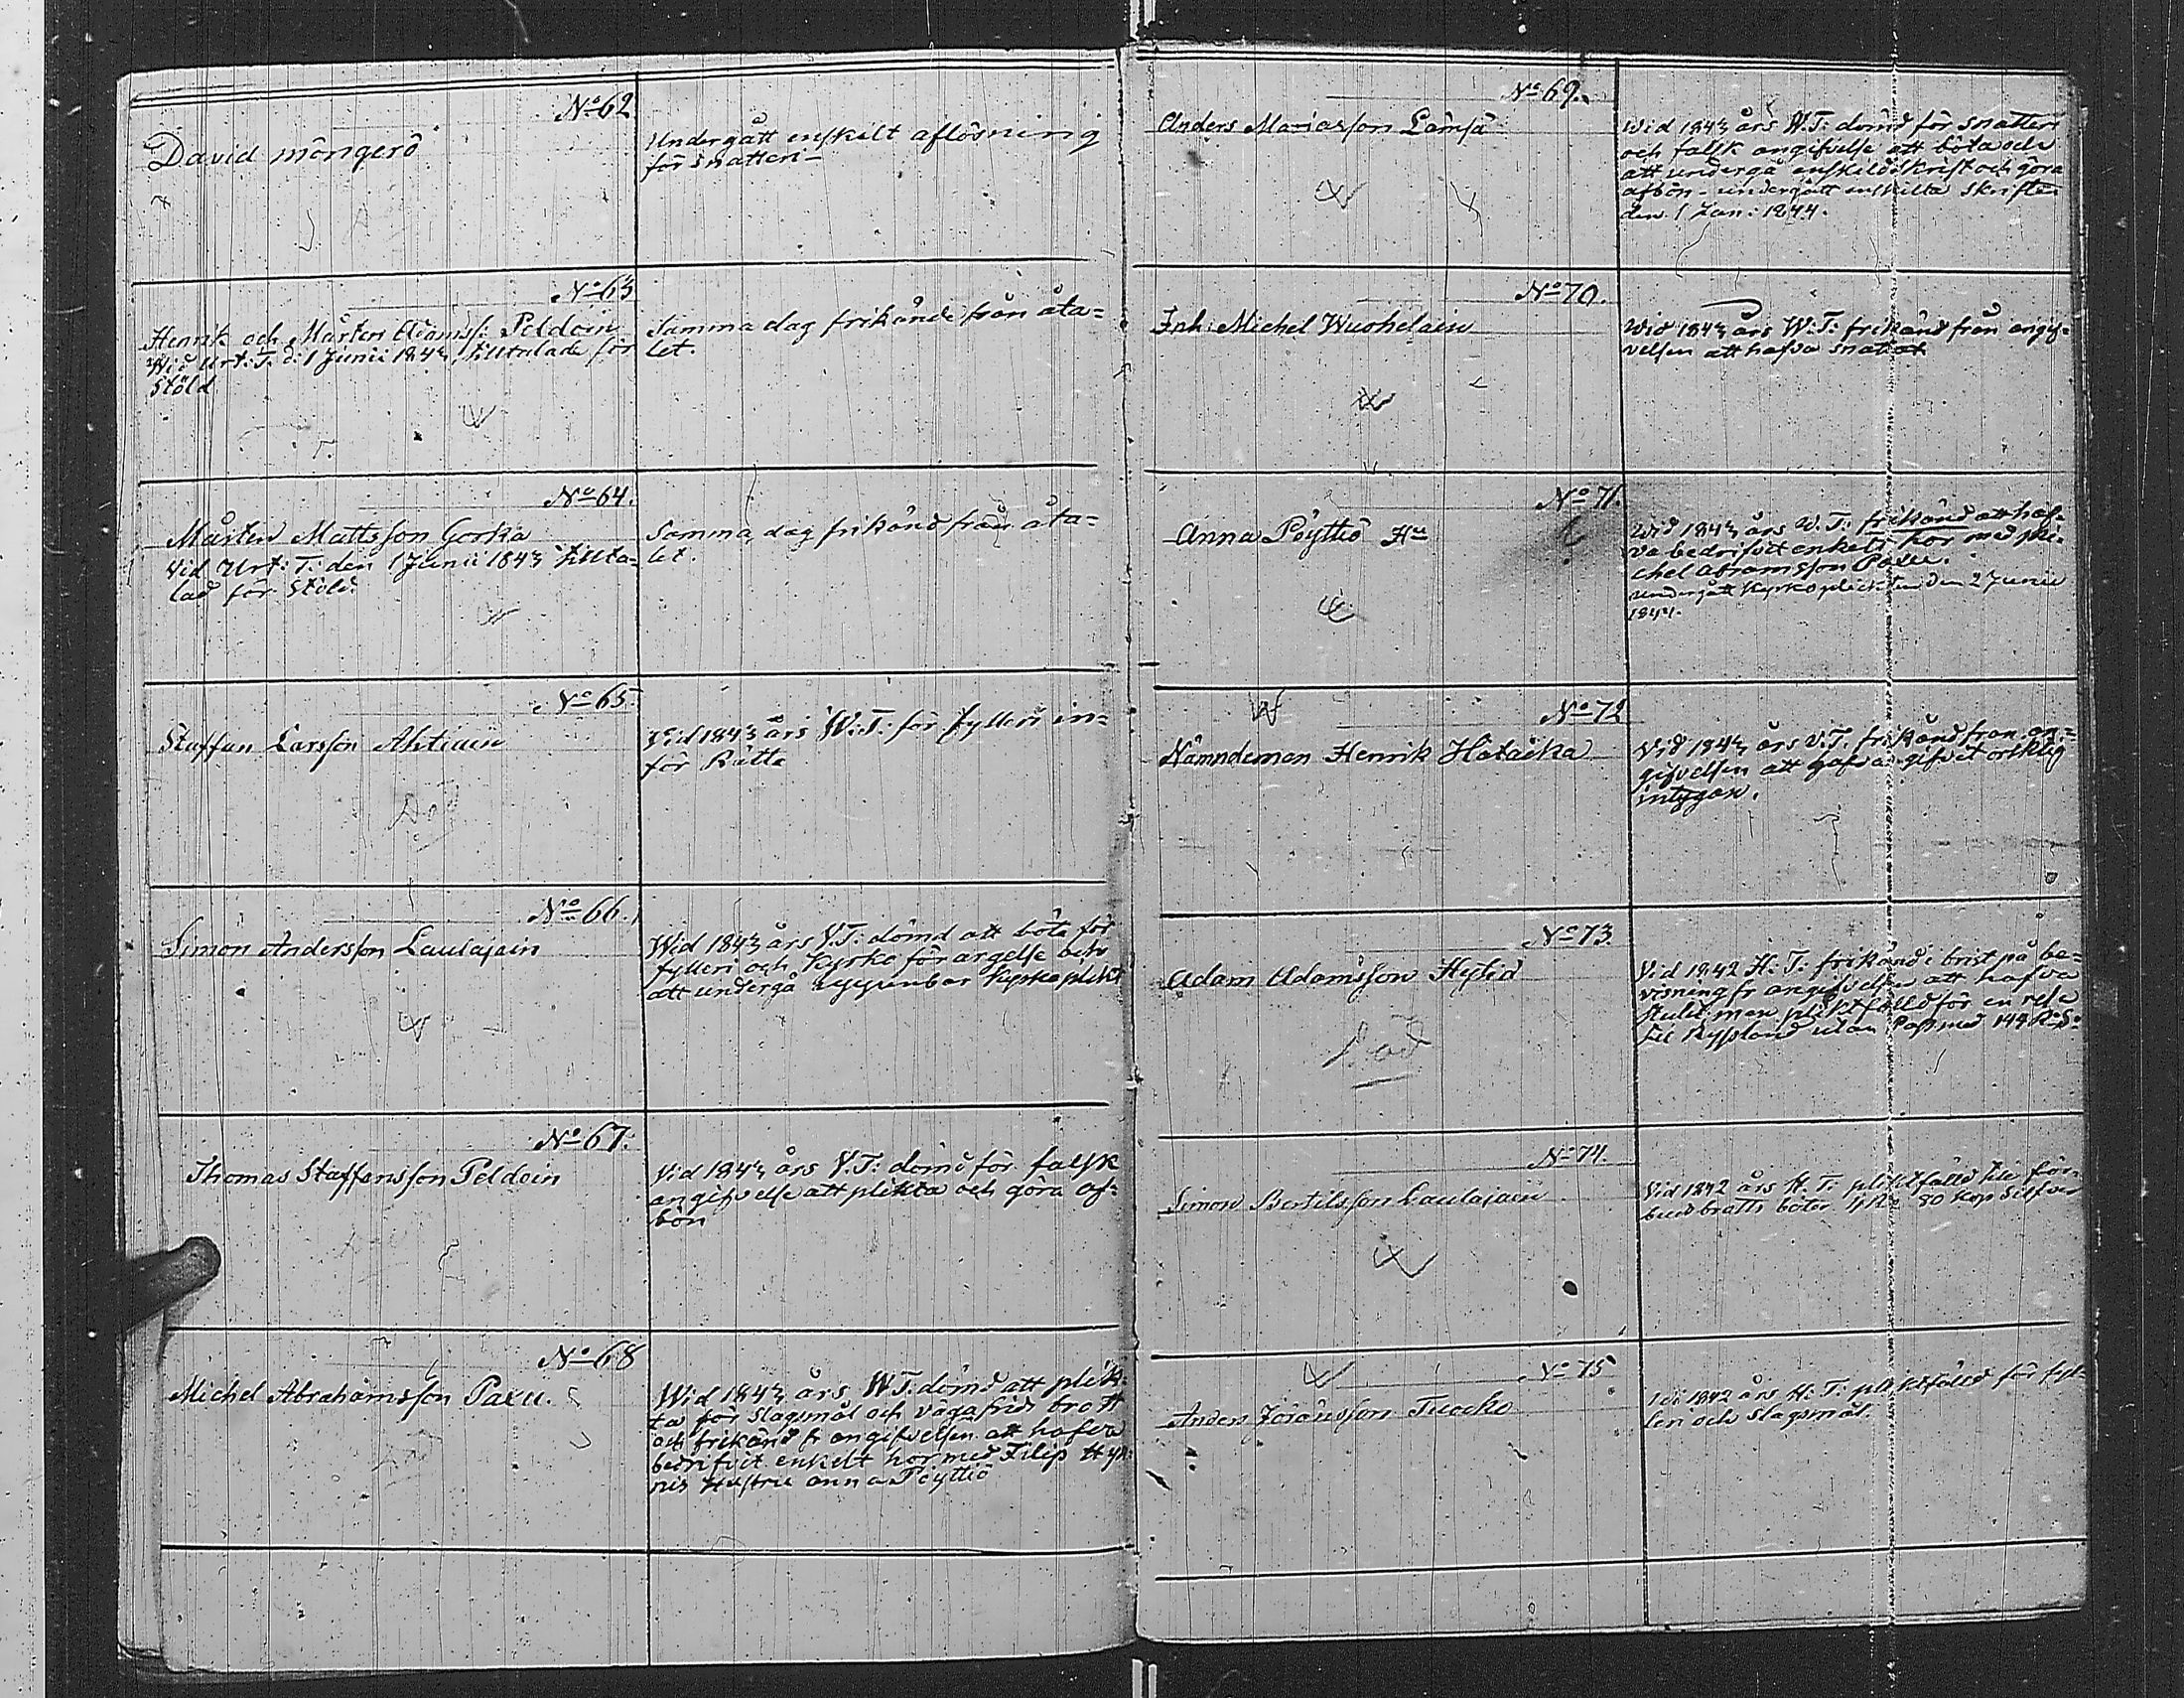 No 62
David Möngerö
Undergått enskilt aflösning
för snatteri
No 63
Henrik och Mårten Adamss: Peldoin
Wid Urt. T. d: 1 Junii 1843, tilltalade för
Stöld
Samma dag frikände från åta=
let.
No 64.
Mårten Mattsson Gorka
Vid Urt: T: den 1 Junii 1843 tillta=
lad för Stöld.
Samma dag frikänd från åta=
let.
No 65.
Staffan Larsson Ahtiain
Vid 1843 års W.T: för fylleri in=
för Rätta
Död
No 66.
Simon Andersson Laulajain
Wid 1843 års V.T: dömd att böta för
fylleri och Kyrko förargelse och
att undergå uppenbar Kyrkoplikt
No 67.
Thomas Staffansson Peldoin
Vid 1843 års V.T: dömd för falsk
angifvelse att plikta och göra af=
bön
No 68
Michel Abrahamsson Paxu.
Wid 1843 års W.T: dömd att plik=
ta för slagsmål och vägafrids brott
och frikänd fr angifvelsen att hafva
bedrifvit enkelt hor med Filip Hyn=
nis Hustru Anna Pöyttiö
No 69.
Anders Mariasson Lämsä
Wid 1843 års W.T: dömd för snatteri
och falsk angifvelse att böta och
att undergå enskild skrift och göra
afbön - undergått enskilta skriften
den 1 Jan: 1844.
No 70.
Inh: Michel Wuohelain
Wid 1843 års W.T: frikänd från angif=
velsen att hafva snattat
No 71.
Anna Pöyttiö Hu
Wid 1843 års W.T: frikänd att haf=
va bedrifvit enkelt hor med Mi=
chel Abramsson Paxu.
undergått Kyrkoplickten den 2 Junii
1844.
No 72
Nämndeman Henrik Hätäikä
Vid 1843 års V.T. frikänd från an=
gifvelsen att hafva gifvit orsklig
intygan.
No 73
Adam Adamsson Hylid
Vid 1842 H: T: frikänd i brist på be=
visning fr angifvelsen att hafva
stulit men pliktfälld för en resa
till Ryssland utan Pass med 144 Ro So
Död
No 74.
Simon Bertilsson Laulajain
Vid 1842 års H. T: pliktfälld till för=
bud brotts böter 4 Ro 80 kop Silfver
No 75
Anders Jöransson Tuocko
Vid 1842 års H: T: pliktfälld för fyl=
leri och slagsmål.